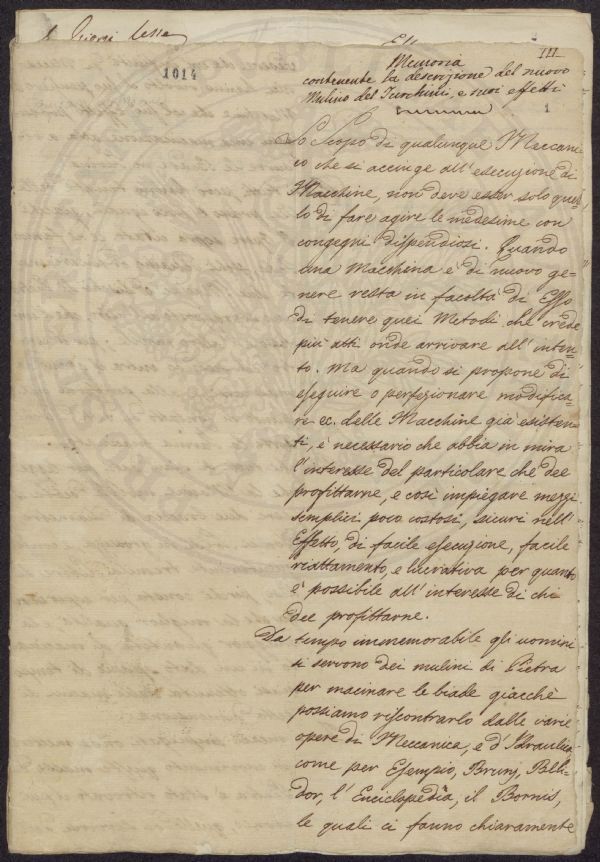 III
1014
Memoria
contenente la descrizione del nuovo
Mulino del Turchini, e suoi effetti
1
Lo Scopo di qualunque Meccani-
co che si accinge all'esecuzione di
Macchine, non deve esser solo quel-
lo di fare agire le medesime con
congegni dispendiosi. Quando
una Macchina è di nuovo ge-
nere resta in facoltà di Esso
di tenere quei Metodi che crede
più atti onde arrivare all'inten-
to. Ma quando si propone di
eseguire o perfezionare modifica
re ec. delle Macchine già esisten-
ti, è necessario che abbia in mira
l'interesse del particolare che dee
profittarne, e così impiegare mezzi
semplici poco costosi, sicuri nell'
Effetto, di facile esecuzione, facile
riattamento, e lucrativa per quanto
è possibile all'interesse di chi
dee profittarne.
Da tempo immemorabile gli uomini
si servono dei mulini di Pietra
per macinare le biade giacchè
possiamo riscontrarlo dalle varie
opere di Meccanica, e d'Idraulica
come per Esempio, Bruni, Beli-
dor, l'Enciclopedia, il Bornis,
le quali ci fanno chiaramente